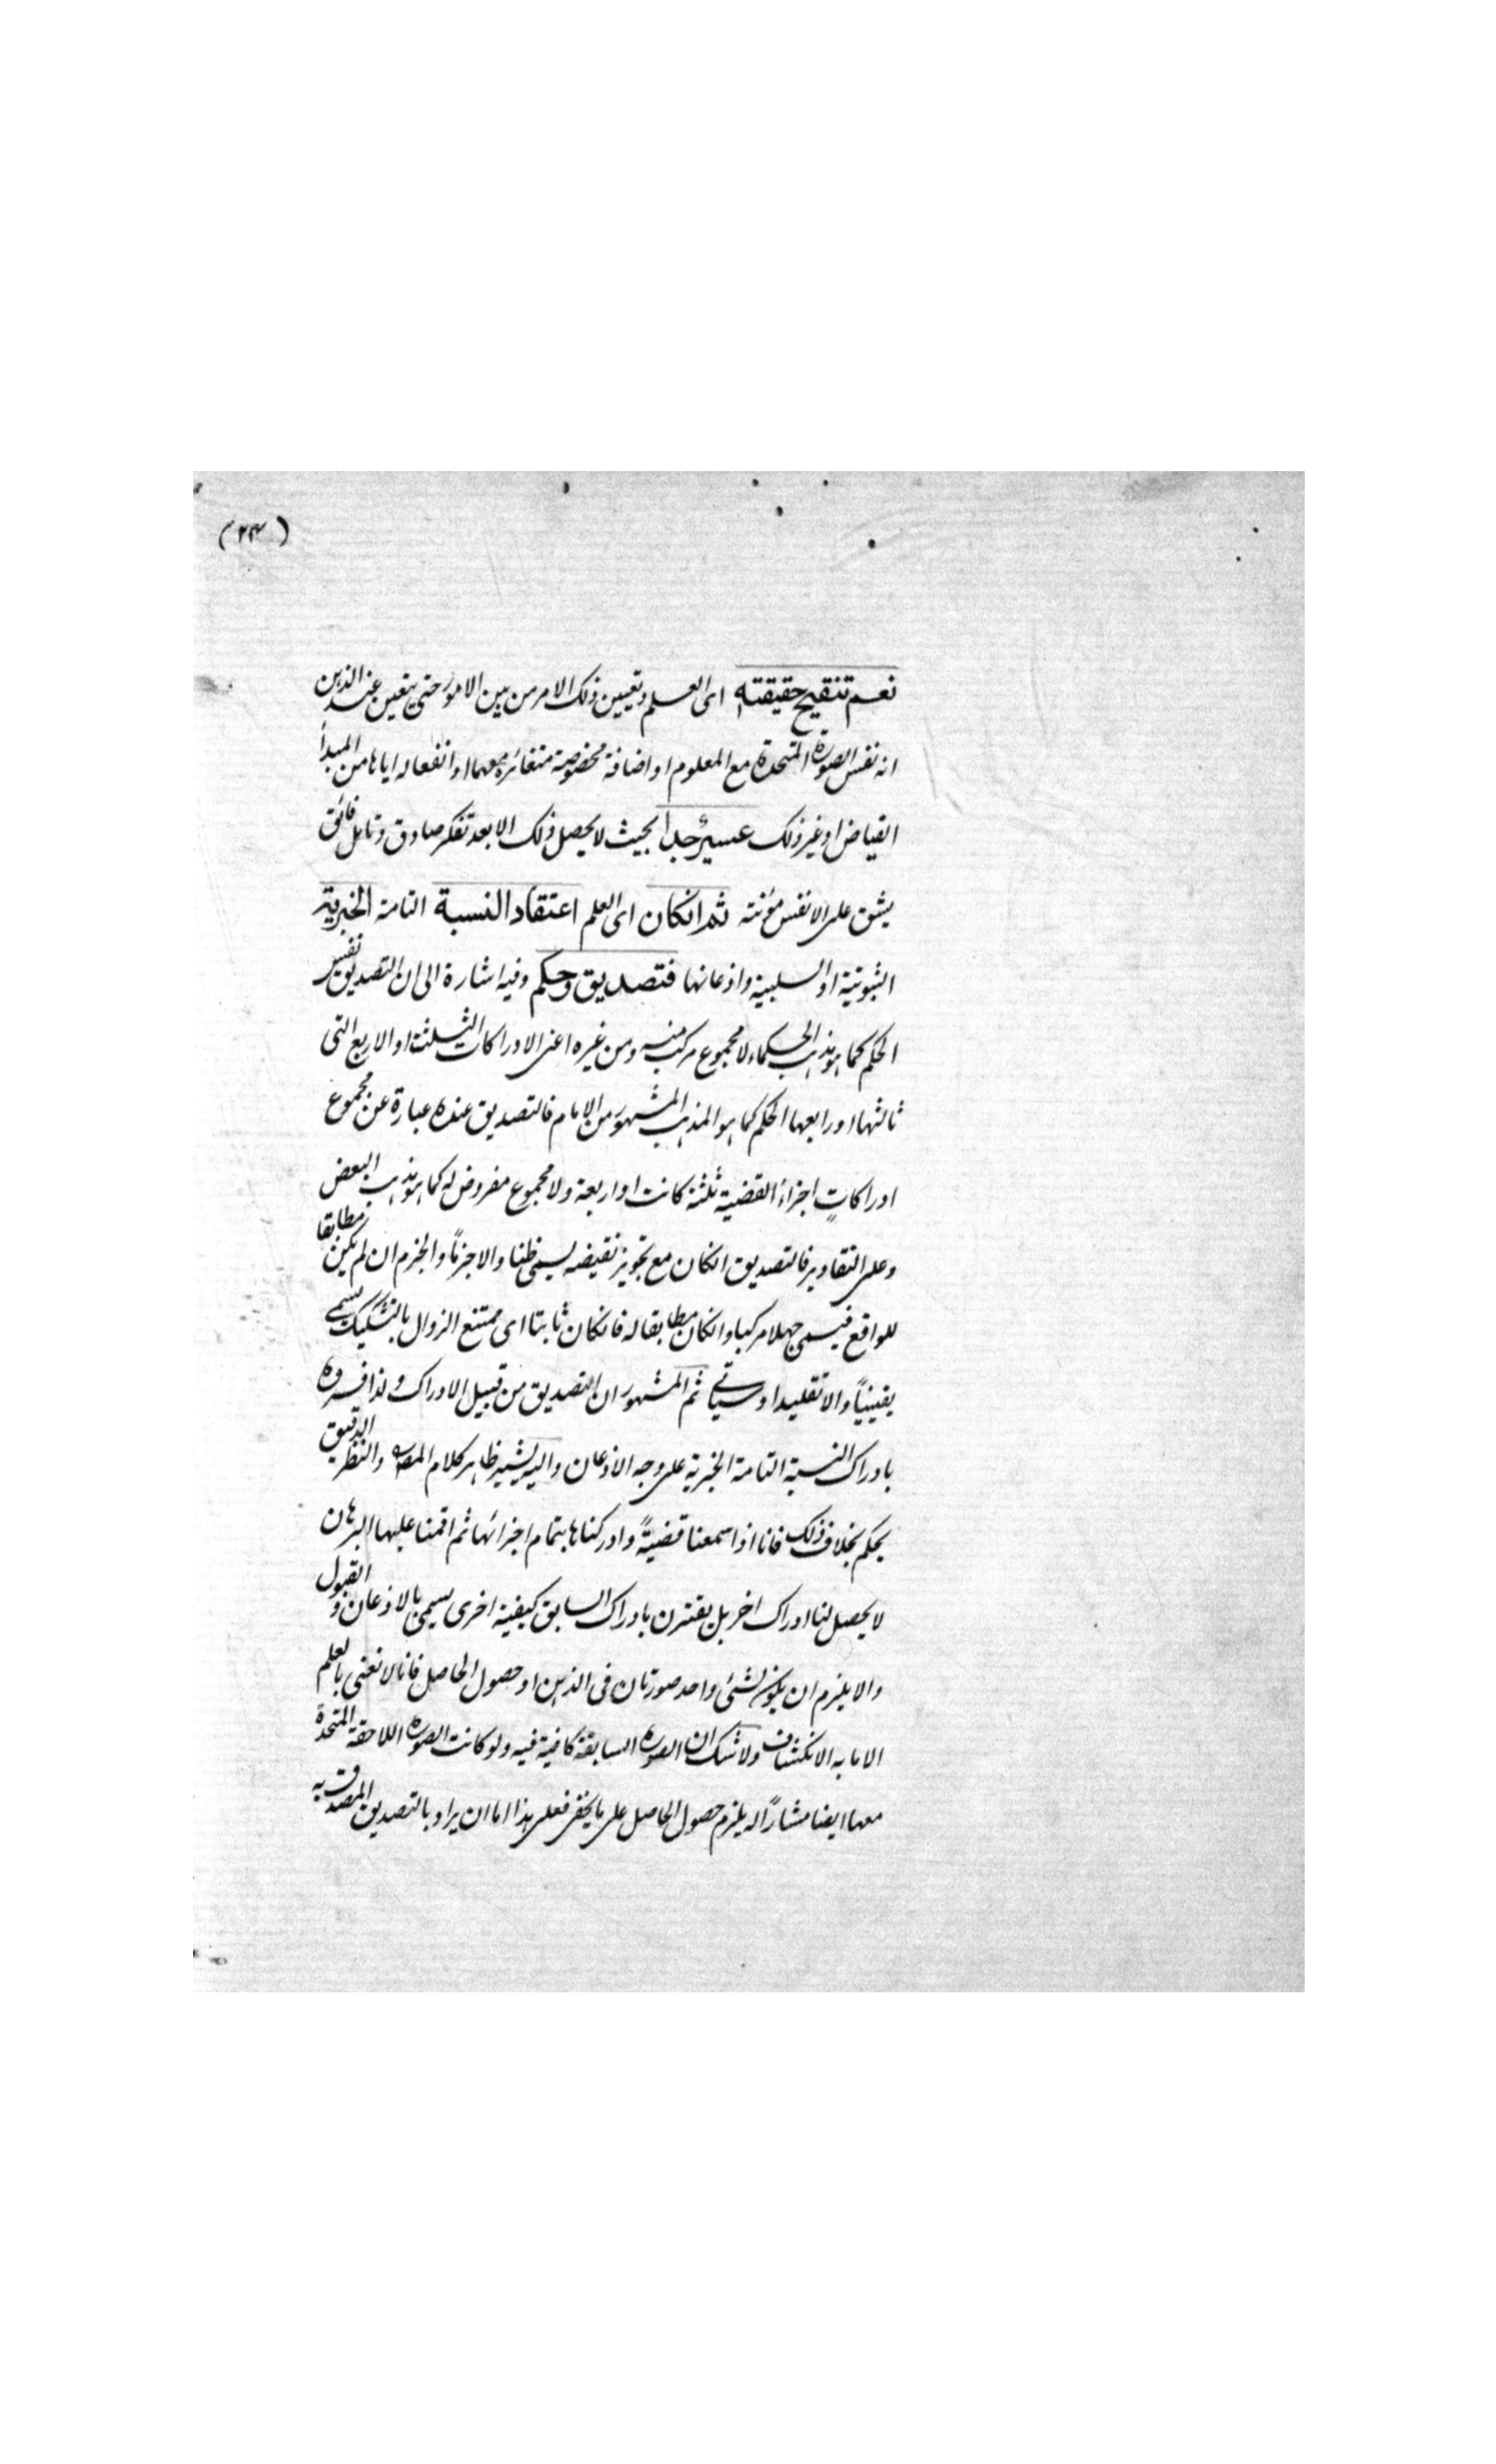 (٢٣)
نعم تنقيح حقيقته اى العلم وتعيين ذلك الامر من بين الامور حتى يتعين عند الذهن
انه نفس الصورة المتحدة مع المعلوم او اضافة مخصوصة متغائرة معهما او انفعاله اياها من المبدأ
الفياض او غير ذلك عسيرٌ جداً بحيث لا يحصل ذلك الا بعد تفكر صادق وتامل فائق
يشق على الانفس مؤنته ثم انكان اى العلم اعتقاد النسبة التامة الخبرية
الثبوتية او السلبية واذعانها فتصديق وحكم وفيه اشارة الى ان التصديق نفس
الحكم كما هو مذهب الحكماء لا مجموع مركب منه ومن غيره اعنى الادراكات الثلثة او الاربع التى
ثالثها او رابعها الحكم كما هو المذهب المشهور من الامام فالتصديق عنده عبارة عن مجموع
ادراكاتٍ اجزاء القضية ثلثة كانت او اربعة ولا مجموع مفروض له كما هو مذهب البعض
وعلى التقادير فالتصديق انكان مع تجويز نقيضه يسمى ظنا والا جزماً والجزم ان لم يكن مطابقا
للواقع فيسمى جهلا مركبا وانكان مطابقا له فانكان ثابتا اى ممتنع الزوال بالتشكيك يسمى
يقينياً والا تقليدا وسياتى ثم المشهور ان التصديق من قبيل الادراك ولذا فسروه
بادراك النسبة التامة الخبرية على وجه الاذعان واليه يشير ظاهر كلام المصـ والنظر الدقيق
يحكم بخلاف ذلك فانا اذا سمعنا قضيةً وادركناها بتمام اجزائها ثم اقمنا عليها البرهان
لا يحصل لنا ادراك اخر بل يقترن بادراك السابق كيفية اخرى يسمى بالاذعان و القبول
والا يلزم ان يكون لشئ واحد صورتان فى الذهن او حصول الحاصل فانا لا نعنى بالعلم
الا ما به الانكشاف ولا شك ان الصورة السابقة كافية فيه ولو كانت الصورة اللاحقة المتحدة
معها ايضا مشاراً له يلزم حصول الحاصل على ما يخفى فعلى هذا اما ان يراد بالتصديق المصدق به